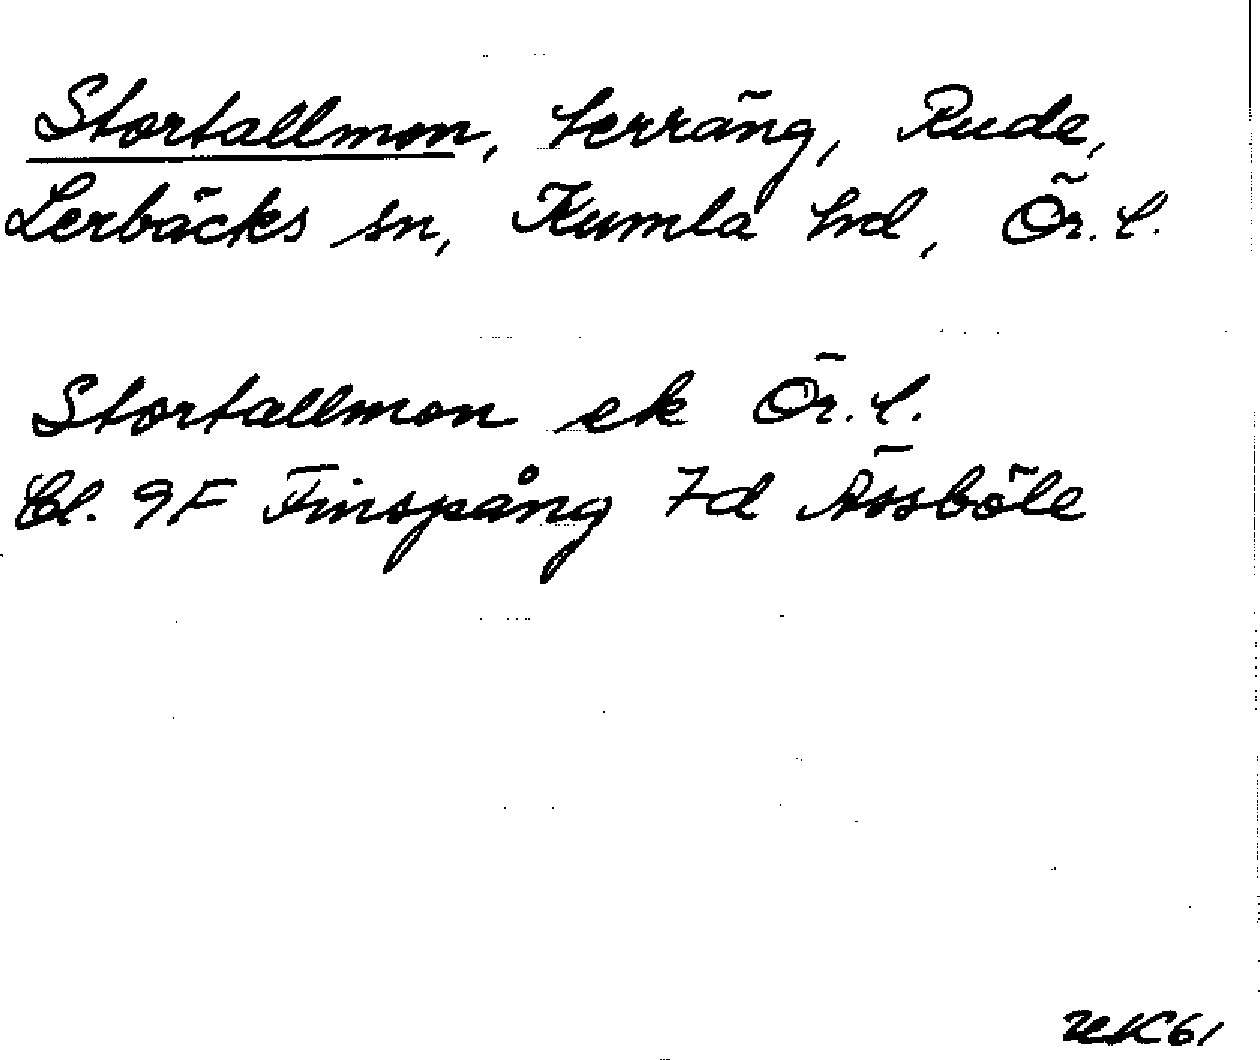 Stortallmon, terräng, Rude,
Lerbäcks sn, Kumla hd, Ör. l.
Stortallmon ek Ör. l.
Bl. 9F Finspång 7d Åsböle